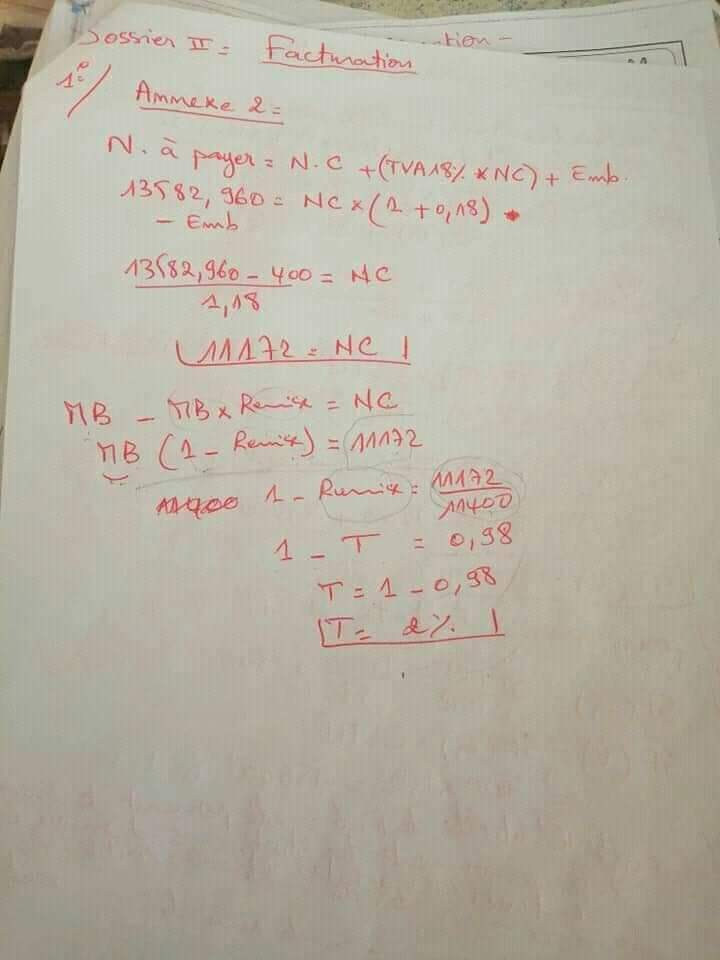 Dossier II = Facturation
1°/ Annexe 2 =
N. à payer = N.C + (TVA18% * NC) + Emb.
13582,960 = NC x (1 + 0,18)
- Emb
13582,960 - 400 = NC
1,18
11172 = NC
MB - MB x Remise = NC
MB (1 - Remise) = 11172
11400 1 - Remise = 11172
11400
1 - T = 0,98
T = 1 - 0,98
T = 2%